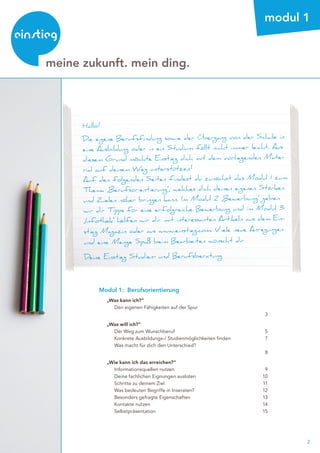 modul 1
einstieg
meine zukunft. mein ding.
Hallo!
Die eigene Berufsfindung sowie der Übergang von der Schule in
eine Ausbildung oder in ein Studium fällt nicht immer leicht. Aus
diesem Grund möchte Einstieg dich mit dem vorliegenden Mater
ial auf deinem Weg unterstützen!
Auf den folgenden Seiten findest du zunächst das Modul 1 zum
Thema „Berufsorientierung“, welches dich deinen eigenen Stärken
und Zielen näher bringen kann. Im Modul 2 „Bewerbung“ geben
wir dir Tipps für eine erfolgreiche Bewerbung und im Modul 3
„Infothek“ helfen wir dir mit interessanten Artikeln aus dem Ein
stieg Magazin oder aus www.einstieg.com. Viele neue Anregungen
und eine Menge Spaß beim Bearbeiten wünscht dir
Deine Einstieg Studien- und Berufsberatung
Modul 1: Berufsorientierung
„Was kann ich?“
Den eigenen Fähigkeiten auf der Spur
3
„Was will ich?“
Der Weg zum Wunschberuf 5
Konkrete Ausbildungs-/ Studienmöglichkeiten finden 7
Was macht für dich den Unterschied?
8
„Wie kann ich das erreichen?“
Informationsquellen nutzen 9
Deine fachlichen Eignungen ausloten 10
Schritte zu deinem Ziel 11
Was bedeuten Begriffe in Inseraten? 12
Besonders gefragte Eigenschaften 13
Kontakte nutzen 14
Selbstpräsentation 15
2